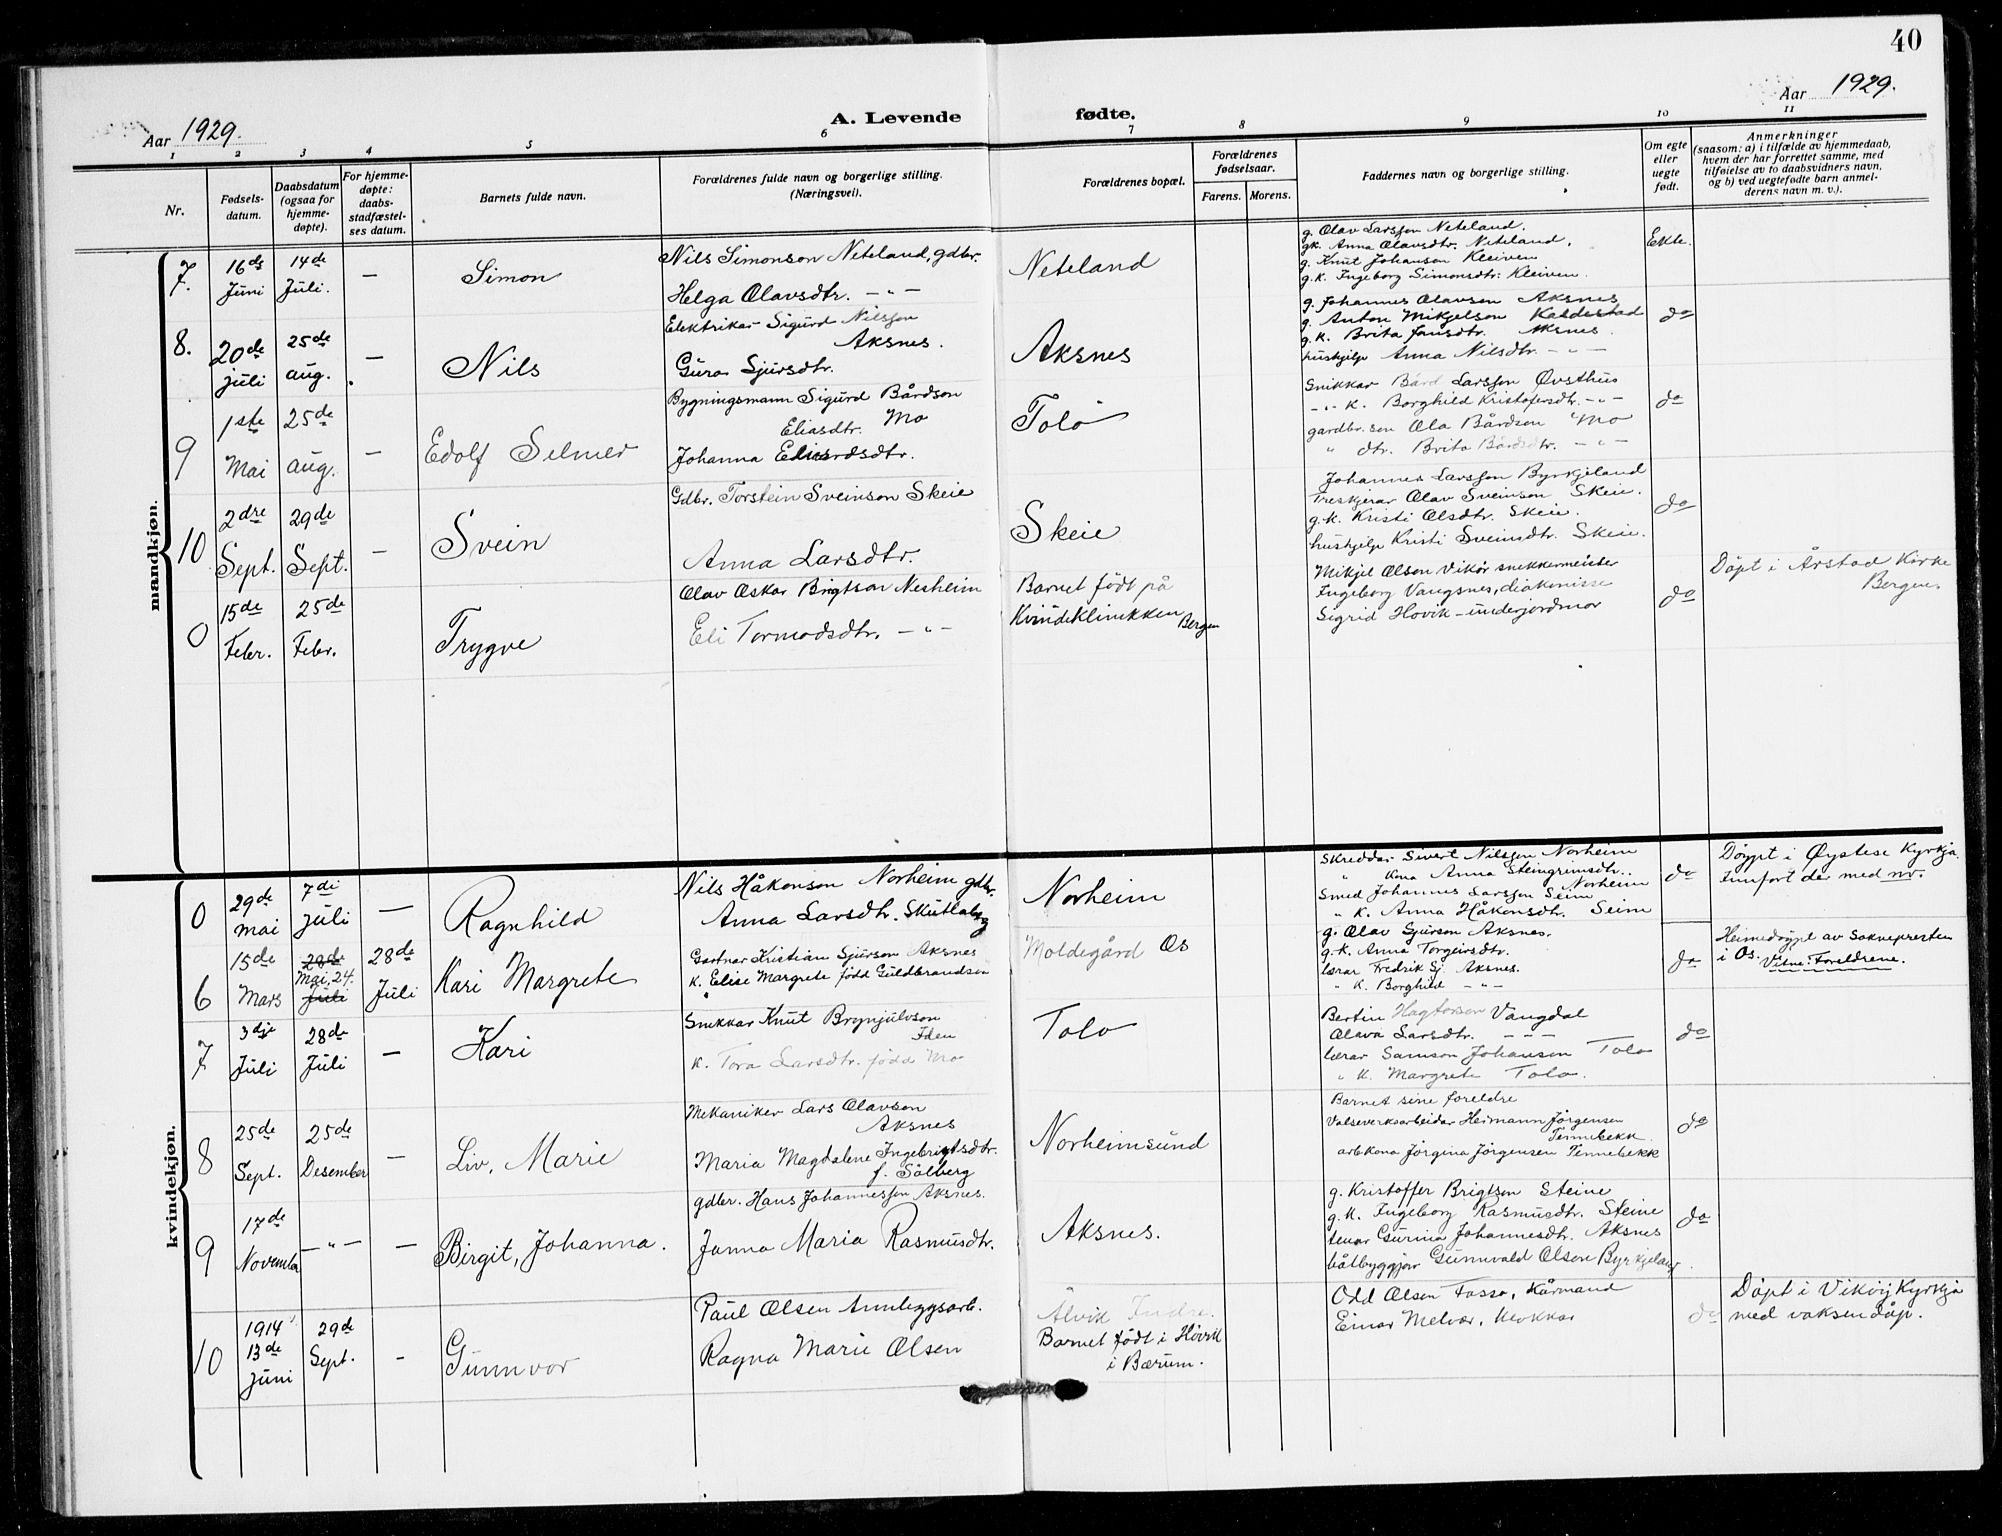 40
Aar 1929.
A. Levende fødte.
Aar 1929.
1 2 3 4 5 6 7 8 9 10 11
Nr.
Fødsels-
datum.
Daabsdatum
(ogsaa for
hjemme-
døpte).
For hjemme-
døpte:
daabs-
stadfæstel-
ses datum.
Barnets fulde navn.
Forældrenes fulde navn og borgerlige stilling.
(Næringsvei).
Forældrenes bopæl.
Forældrenes
fødselsaar.
Farens. Morens.
Faddernes navn og borgerlige stilling.
Om egte
eller
uegte
født.
Anmerkninger
(saasom: a) i tilfælde av hjemmedaab,
hvem der har forrettet samme, med
tilføielse av to daabsvidners navn,
og b) ved uegtefødte barn anmel-
derens navn m. v.).
mandkjøn.
7.
16de
Juni
14de
Juli.
—
Simon
Nils Simonson Neteland, gdbr.
Helga Olavsdtr. — " —
Neteland
g. Olav Larsson Neteland.
gk. Anna Olavsdtr. Neteland.
g. Knut Johanson Kleiven
g.k. Ingeborg Simonsdtr. Kleiven.
Ekte.
8.
20de
juli
25de
aug.
—
Nils
Elektrikar Sigurd Nilsson
Aksnes.
Guro Sjursdtr.
Aksnes
g. Johannes Olavson Aksnes
g. Anton Mikjelson Kaldestad
g.k. Brita Jansdtr. Aksnes.
hushjelp Anna Nilsdtr. — " —
do
9
1ste
Mai
25de
aug.
—
Edolf Selmer
Bygningsmann Sigurd Bårdson
Mo
Eliasdtr.
Johanna
Tolo
Snikkar Bård Larsson Øvsthus
— " — k. Borghild Kristofersdtr. — " —
gardbr. son Ola Bårdson Mo
" dtr. Brita Bårdsdtr. — " —
do
10
2dre
Sept.
29de
Sept.
—
Svein
Gdbr. Torstein Sveinson Skeie
Anna Larsdtr.
Skeie
Johannes Larsson Byrkjeland
Treskjerar Olav Sveinson Skeie.
g.k. Kristi Olsdtr. Skeie.
hushjelp Kristi Sveinsdtr. Skeie.
do
0
15de
Febr.
25de
Febr.
Trygve
Olav Oskar Brigtson Nesheim
Eli Tormodsdtr. — " —
Barnet født på
Kvindeklinikken
Bergen
Mikjel Olson Vikør snekkermeister
Ingeborg Vangsnes, diakonisse
Sigrid Hovik — underjordmor
do
Døpt i Årstad Kirke
Bergen.
kvindekjøn.
0
29de
mai
7di
juli
—
Ragnhild
Nils Håkonson Norheim gdbr.
Anna Larsdtr. Skutlaberg
Norheim
Skreddar Sivert Nilsson Norheim
" kona Anna Steingrimsdtr.
Norheim
Smed Johannes Larsson Seim
" k. Anna Håkonsdtr. Seim
do
Døypt i Øystese Kyrkja.
Innført der med nr.
6
15de
Mars
28de
Mai, 24.
Juli
28de
Juli
Kari Margrete
Gartnar Kristian Sjurson Aksnes
k. Elise Margrete født Guldbrandsen
Moldegård Os
g. Olav Sjurson Aksnes.
g.k. Anna Torgeirsdtr.
lærar Fredrik Sj. Aksnes.
" k. Borghild — " —
do
Heimedøypt av Soknepresten
i Os. Vitne: Foreldrene.
7
3dje
Juli
28de
Juli
—
Kari
Snikkar Knut Brynjulvson
k. Tora Larsdtr. født Mo
Tolo
Bertin Hagtorson Vangdal
Olava Larsdtr. — " —
lærar Samson Johanson Tolo
" k. Margrete Tolo.
do
8
25de
Sept.
25de
Desember
—
Liv, Marie
Mekaniker Lars Olavson
Aksnes
Maria Magdalene Ingebrigtsdtr.
f. Solberg
Norheimsund
Barnet sine foreldre
Valseverksarbeidar Hermann Jørgensen
Tennebekk.
arb.kona Jørgina Jørgensen Tennebekk
do
9
17de
November
— " —
—
Birgit, Johanna.
gdbr. Hans Johannesson Aksnes.
Janna Maria Rasmusdtr.
Aksnes.
g. Kristoffer Brigtson Steine
g.k. Ingeborg Rasmusdtr. Steine
tenar Gurina Johannesdtr. Aksnes
båtbyggjar Gunnvald Olson Byrkjeland.
do
10
1914
13de
juni
29de
Sept.
-
Gunnvor
Paul Olsen Annleggsarb.
Ragna Marie Olsen
Ålvik Indre.
Barnet født i Høvik
i Bærum.
Odd Olsen Fosso, Kårmand
Einar Melvær,
do
Døpt i Vikøy Kyrkja
med vaksen dåp.